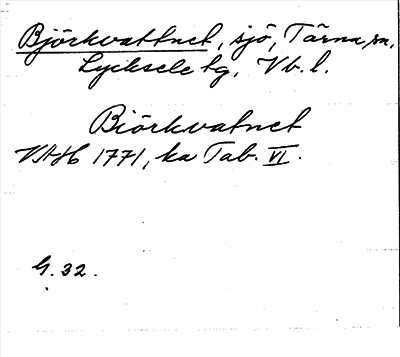 Björkvattnet, sjö, Tärna sn,
Lycksele tg, Vb. l.
Biörkvatnet
VAH 1771, ka Tab. VI.
G. 32.